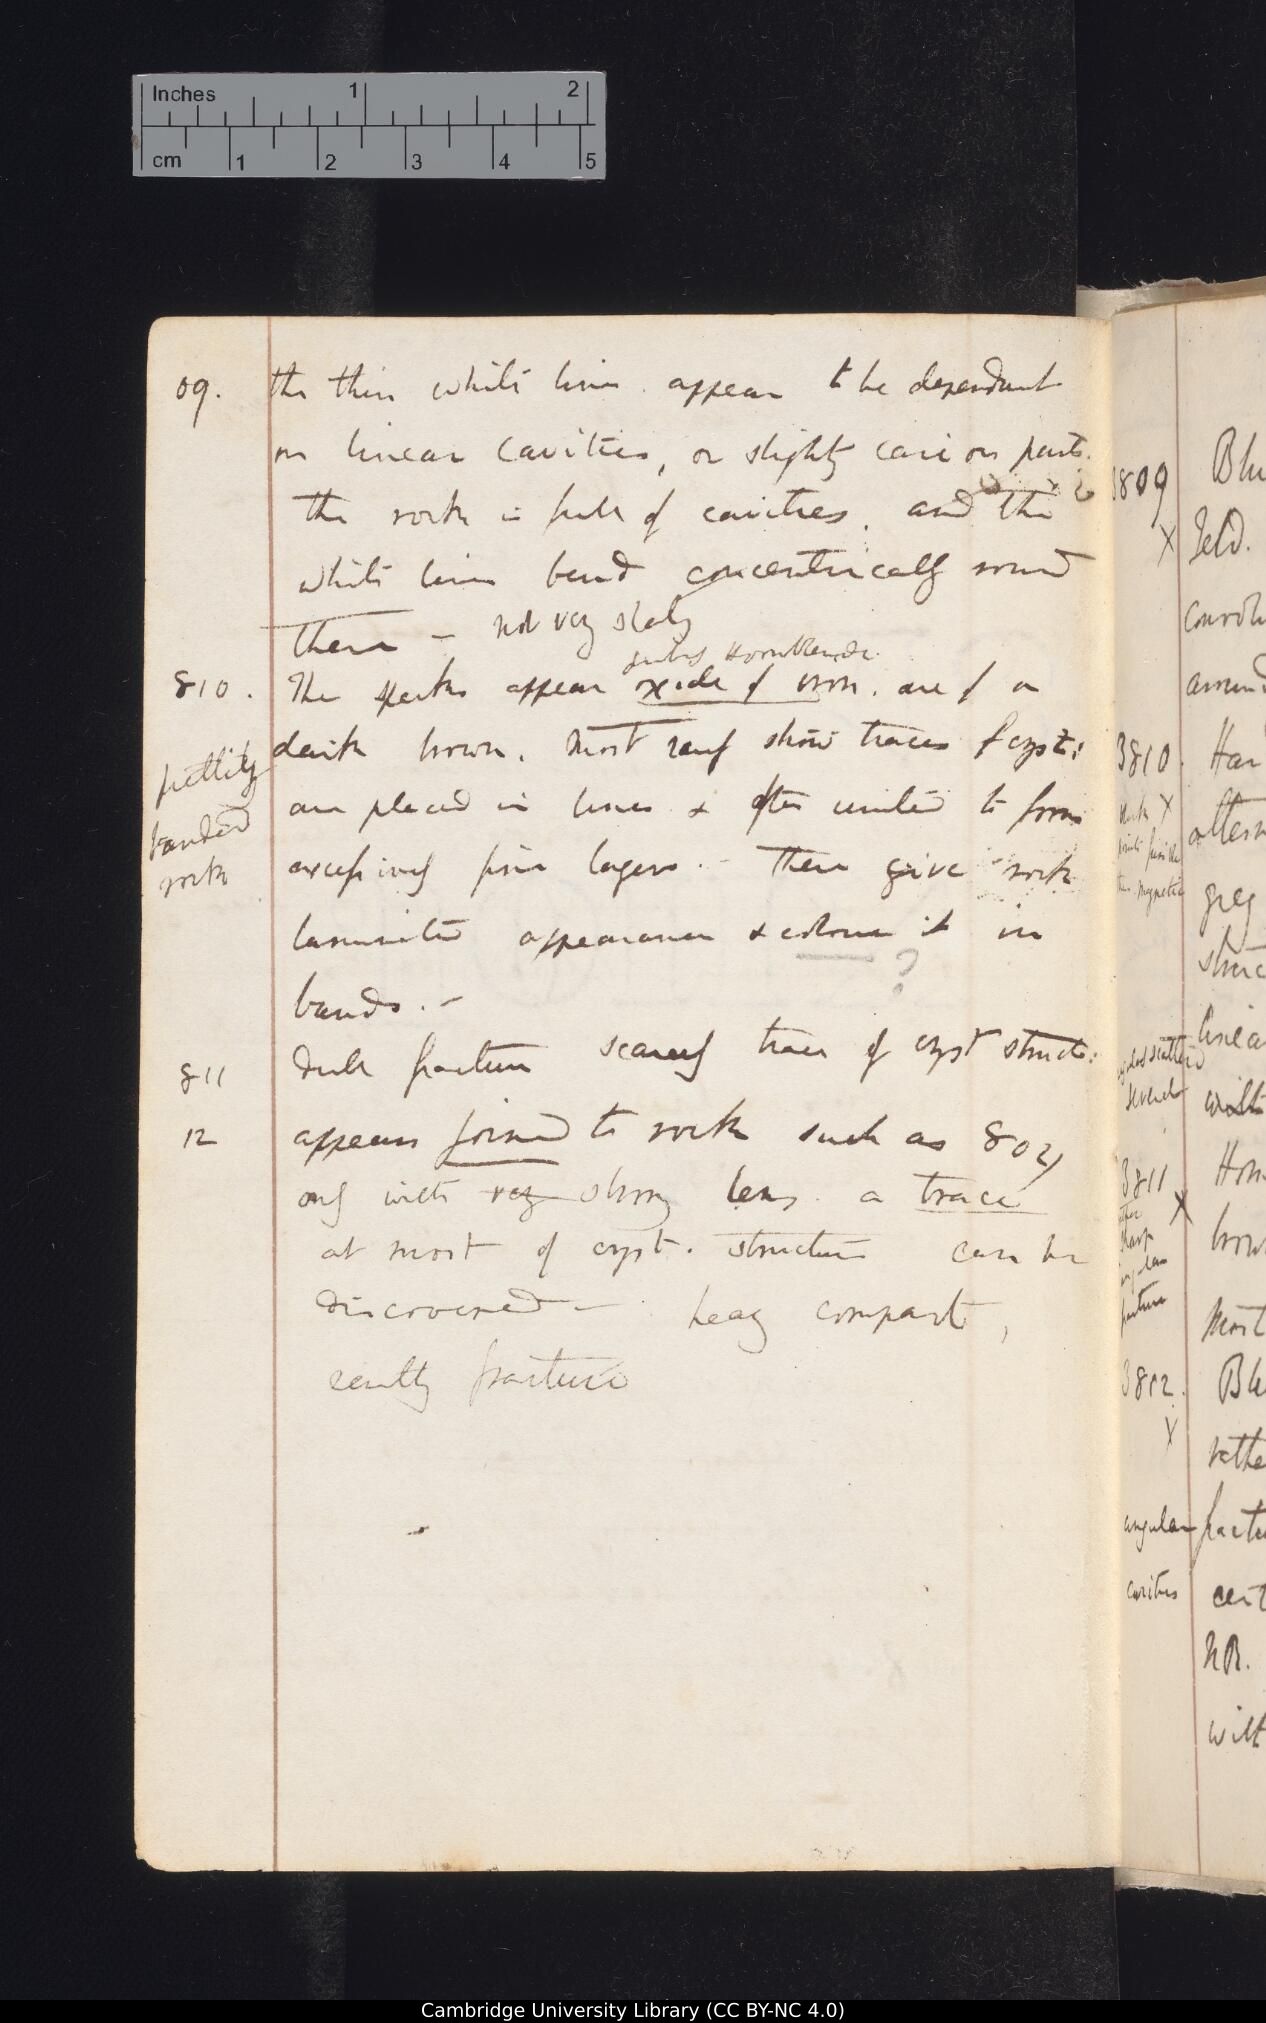 Inches 1 2
cm 1 2 3 4 5
09. the thin white lines appear to be dependant
on linear cavities, or slightly carious parts.
the rock is full of cavities, and the
white lines bend concentrically round
them — not very slaty
Hornblende
810. The specks appear oxide of iron. are of a
dark brown. Most rarely show traces of cryst:
pettily
are placed in lines & often united to form
banded
excessively fine layers. — These give rock
rock
laminated appearance & colour it in
?
bands. —
811 dull fracture scarcely trace of cryst struct:
12 appears joined to rock such as 802,
only with very strong lens. a trace
at most of cryst. structure can be
discovered — heavy compact,
fracture
3809 Blu
X
3810. Har
X
3811
X
brow
fracture
Most
3812.
X
rathe
angular fractu
cavities
NB.
with
Cambridge University Library (CC BY-NC 4.0)